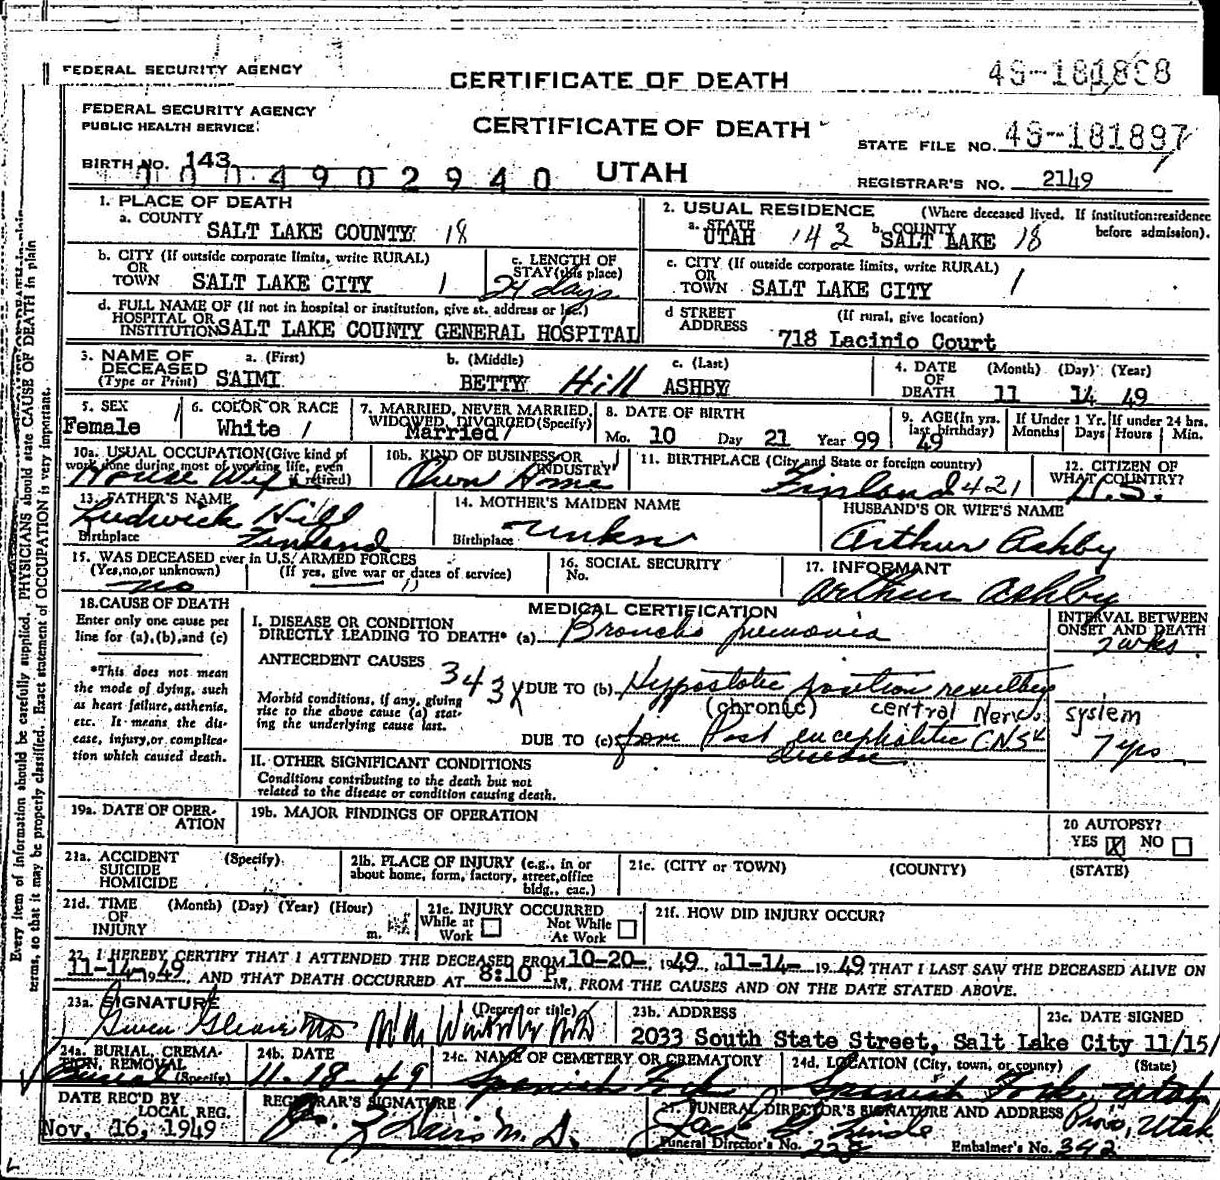 FEDERAL SECURITY AGENCY
CERTIFICATE OF DEATH
49-181898
FEDERAL SECURITY AGENCY
PUBLIC HEALTH SERVICE
CERTIFICATE OF DEATH
STATE FILE NO. 49-181897
BIRTH NO. 143
0004902940
UTAH
REGISTRAR'S NO. 2149
1. PLACE OF DEATH
a. COUNTY
SALT LAKE COUNTY 18
2. USUAL RESIDENCE (Where deceased lived. If institution:residence before admission).
a. STATE UTAH 143 b. COUNTY SALT LAKE 18
b. CITY (If outside corporate limits, write RURAL)
OR
TOWN SALT LAKE CITY 1
c. LENGTH OF
STAY (this place)
24 days
c. CITY (If outside corporate limits, write RURAL)
OR
TOWN SALT LAKE CITY 1
d. FULL NAME OF (If not in hospital or institution, give st. address or loc.)
HOSPITAL OR
INSTITUTION SALT LAKE COUNTY GENERAL HOSPITAL
d STREET
ADDRESS
(If rural, give location)
718 Lacinio Court
3. NAME OF
DECEASED
(Type or Print)
a. (First)
SAIMI
b. (Middle)
BETTY Hill
c. (Last)
ASHBY
4. DATE
OF
DEATH
(Month) (Day) (Year)
11 14 49
5. SEX
Female 1
6. COLOR OR RACE
White 1
7. MARRIED, NEVER MARRIED,
WIDOWED, DIVORCED (Specify)
Married 1
8. DATE OF BIRTH
Mo. 10 Day 21 Year 99
9. AGE (In yrs.
last birthday)
49
If Under 1 Yr.
Months Days
If under 24 hrs.
Hours Min.
10a. USUAL OCCUPATION (Give kind of
work done during most of working life, even
if retired)
House Wife
10b. KIND OF BUSINESS OR
INDUSTRY
Own Home
11. BIRTHPLACE (City and State or foreign country)
Finland 421
12. CITIZEN OF
WHAT COUNTRY?
U.S.
13. FATHER'S NAME
Ludwick Hill
Birthplace Finland
14. MOTHER'S MAIDEN NAME
Birthplace unkn
HUSBAND'S OR WIFE'S NAME
Arthur Ashby
15. WAS DECEASED ever in U.S. ARMED FORCES
(Yes, no, or unknown) (If yes, give war or dates of service)
no
16. SOCIAL SECURITY
No.
17. INFORMANT
Arthur Ashby
18. CAUSE OF DEATH
Enter only one cause per
line for (a), (b), and (c)
*This does not mean
the mode of dying, such
as heart failure, asthenia,
etc. It means the dis-
ease, injury, or complica-
tion which caused death.
MEDICAL CERTIFICATION
I. DISEASE OR CONDITION
DIRECTLY LEADING TO DEATH* (a) Broncho pneumonia
ANTECEDENT CAUSES
343X
Morbid conditions, if any, giving
rise to the above cause (a) stat-
ing the underlying cause last.
DUE TO (b) Hypostatic position resulting
(chronic) central Nervs. system
DUE TO (c) from Post encephalitic CNS
disease
II. OTHER SIGNIFICANT CONDITIONS
Conditions contributing to the death but not
related to the disease or condition causing death.
INTERVAL BETWEEN
ONSET AND DEATH
2 wks.
7 yrs
19a. DATE OF OPER-
ATION
19b. MAJOR FINDINGS OF OPERATION
20 AUTOPSY?
YES X NO
21a. ACCIDENT (Specify)
SUICIDE
HOMICIDE
21b. PLACE OF INJURY (e.g., in or
about home, form, factory, street, office
bldg., cac.)
21c. (CITY or TOWN) (COUNTY) (STATE)
21d. TIME (Month) (Day) (Year) (Hour)
OF
INJURY m.
21e. INJURY OCCURRED
While at Work Not While At Work
21f. HOW DID INJURY OCCUR?
22. I HEREBY CERTIFY THAT I ATTENDED THE DECEASED FROM 10-20-, 1949, to 11-14-, 1949 THAT I LAST SAW THE DECEASED ALIVE ON
11-14-, 1949, AND THAT DEATH OCCURRED AT 8:10 P M, FROM THE CAUSES AND ON THE DATE STATED ABOVE.
23a. SIGNATURE (Degree or title)
23b. ADDRESS
2033 South State Street, Salt Lake City
23c. DATE SIGNED
11/15/
24a. BURIAL, CREMA-
TION, REMOVAL
(Specify)
Burial
24b. DATE
11-18-49
24c. NAME OF CEMETERY OR CREMATORY
Spanish Fork
24d. LOCATION (City, town, or county) (State)
Spanish Fork, Utah
DATE REC'D BY
LOCAL REG.
Nov. 16, 1949
REGISTRAR'S SIGNATURE
FUNERAL DIRECTOR'S SIGNATURE AND ADDRESS Provo, Utah
Funeral Director's No. Embalmer's No. 342
Every item of information should be carefully supplied. PHYSICIANS should state CAUSE OF DEATH in plain
terms, so that it may be properly classified. Exact statement of OCCUPATION is very important.